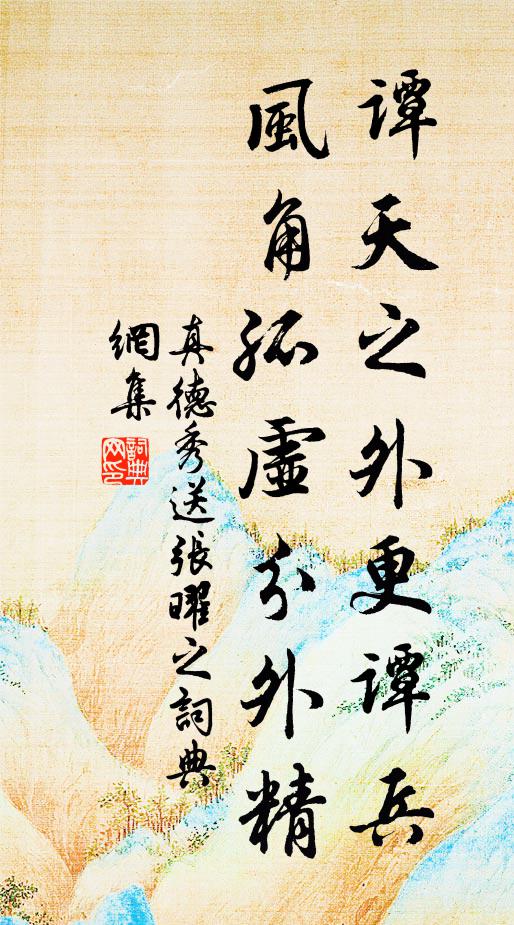 譚天之外更譚兵
風角孤虛分外精
真德秀送張曜之詞典
網集
詞典
网印